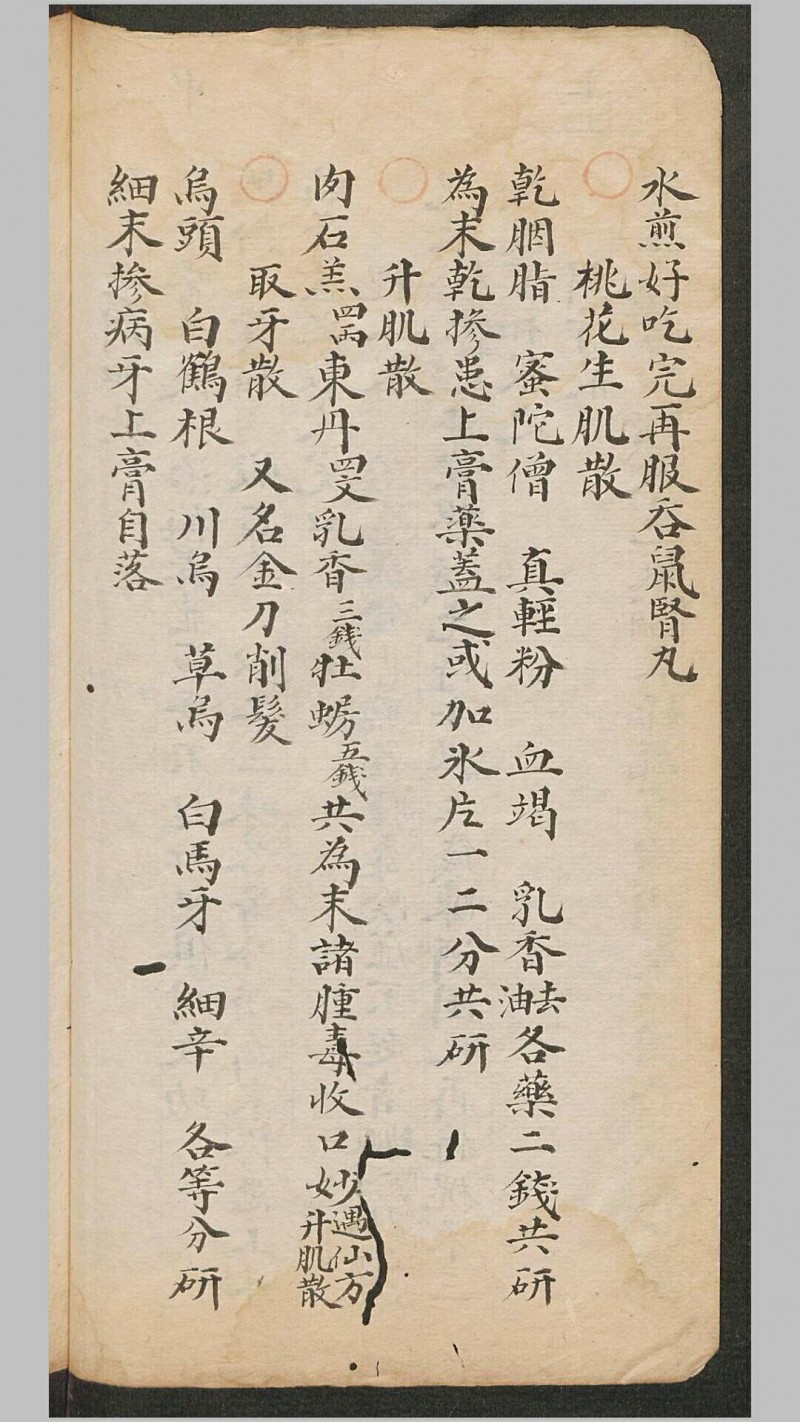 水煎好吃完再服吞鼠腎丸
桃花生肌散
乾胭脂 蜜陀僧 真輕粉 血竭 乳香去油各藥二錢共研
為末乾掺患上膏藥蓋之或加氷片一二分共研
升肌散
肉石羔四両東丹四文乳香三錢牡蛎五錢共為末諸腫毒收口妙遇仙方升肌散
取牙散 又名金刀削髮
烏頭 白鶴根 川烏 草烏 白馬牙 細辛 各等分研
細末掺病牙上膏自落